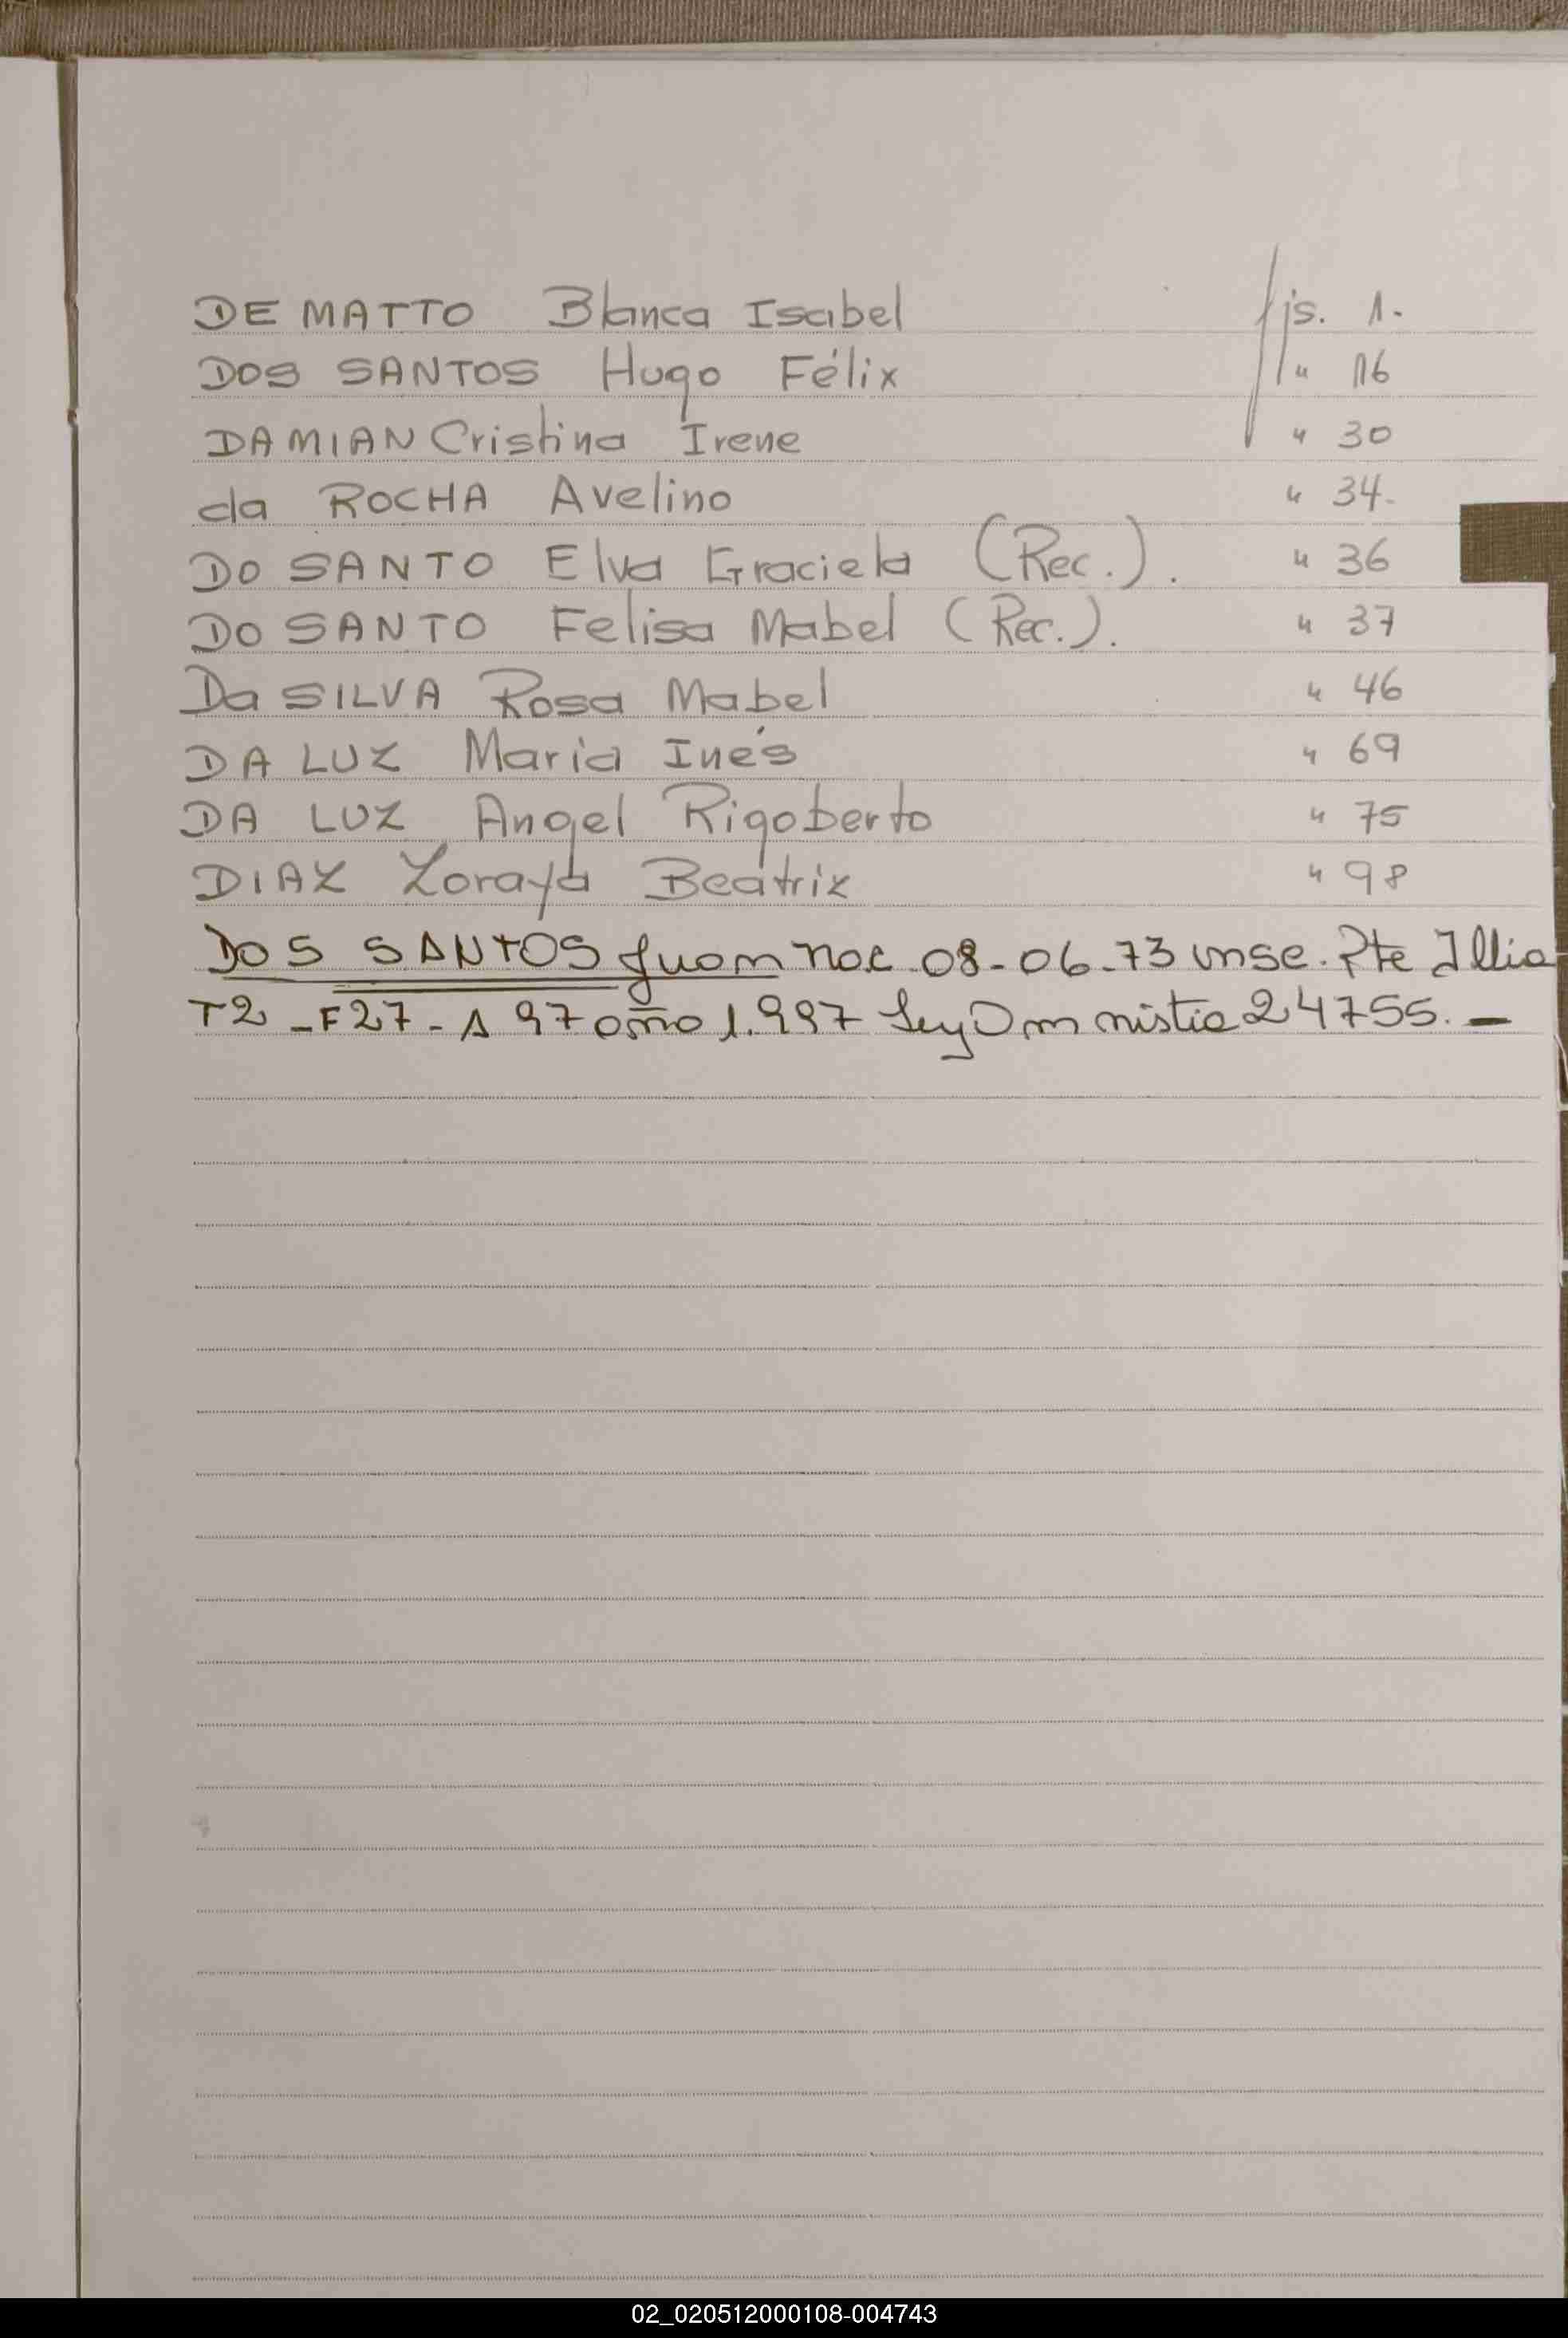 DE MATTO Blanca Isabel fjs. 1.
DOS SANTOS Hugo Félix " 16
DAMIAN Cristina Irene " 30
da ROCHA Avelino " 34.
DO SANTO Elva Graciela (Rec.). " 36
DO SANTO Felisa Mabel (Rec.). " 37
Da SILVA Rosa Mabel " 46
DA LUZ Maria Inés " 69
DA LUZ Angel Rigoberto " 75
DIAZ Zorayda Beatriz " 98
DOS SANTOS Juan nac 08-06-73 insc. Pte Illia
T2 - F27 - A 97 año 1.997 Ley Amnistia 24755. -
02_020512000108-004743